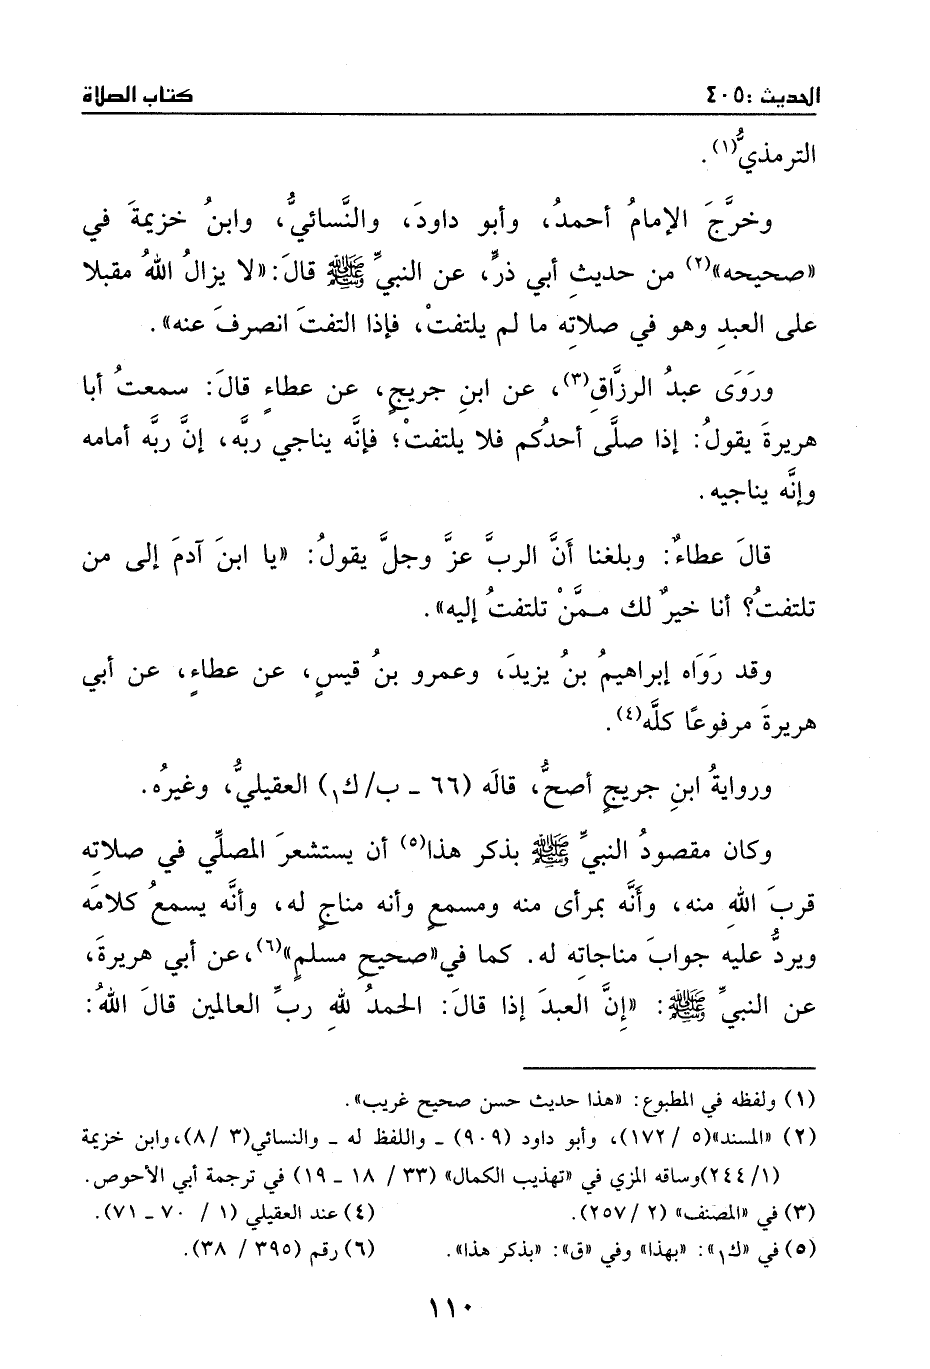 الحديث : ٤٠٥
كتاب الصلاة
الترمذيُّ(١).
وخرَّجَ الإمامُ أحمدُ، وأبو داودَ، والنَّسائيُّ، وابنُ خزيمةَ في
«صحيحه»(٢) من حديثِ أبي ذرٍّ، عن النبيِّ ﷺ قالَ: «لا يزالُ اللهُ مقبلا
على العبدِ وهو في صلاتِه ما لم يلتفتْ، فإذا التفتَ انصرفَ عنه».
ورَوَى عبدُ الرزَّاقِ(٣)، عن ابنِ جريجٍ، عن عطاءٍ قالَ: سمعتُ أبا
هريرةَ يقولُ: إذا صلَّى أحدُكم فلا يلتفتْ؛ فإنَّه يناجي ربَّه، إنَّ ربَّه أمامه
وإنَّه يناجيه.
قالَ عطاءٌ: وبلغنا أنَّ الربَّ عزَّ وجلَّ يقولُ: «يا ابنَ آدمَ إلى من
تلتفتُ؟ أنا خيرٌ لك ممَّنْ تلتفتُ إليه».
وقد رَوَاه إبراهيمُ بنُ يزيدَ، وعمرو بنُ قيسٍ، عن عطاءٍ، عن أبي
هريرةَ مرفوعًا كلَّه(٤).
وروايةُ ابنِ جريجٍ أصحُّ، قالَه (٦٦ - ب/ك١) العقيليُّ، وغيرُه.
وكان مقصودُ النبيِّ ﷺ بذكر هذا(٥) أن يستشعرَ المصلِّي في صلاتِه
قربَ اللهِ منه، وأَنَّه بمرأى منه ومسمعٍ وأنه مناجٍ له، وأنَّه يسمعُ كلامَه
ويردُّ عليه جوابَ مناجاتِه له. كما في «صحيحِ مسلمٍ»(٦)، عن أبي هريرةَ،
عن النبيِّ ﷺ: «إنَّ العبدَ إذا قالَ: الحمدُ للهِ ربِّ العالمين قالَ اللهُ:
(١) ولفظه في المطبوع: «هذا حديث حسن صحيح غريب».
(٢) «المسند»(٥ /١٧٢)، وأبو داود (٩٠٩) ـ واللفظ له ـ والنسائي(٣ /٨)، وابن خزيمة
(١/ ٢٤٤)وساقه المزي في «تهذيب الكمال» (٣٣ / ١٨ ـ ١٩) في ترجمة أبي الأحوص.
(٣) في «المصنف» (٢ /٢٥٧). (٤) عند العقيلي (١ / ٧٠ ـ ٧١).
(٥) في «ك١»: «بهذا» وفي «ق»: «بذكر هذا». (٦) رقم (٣٩٥ / ٣٨).
١١٠